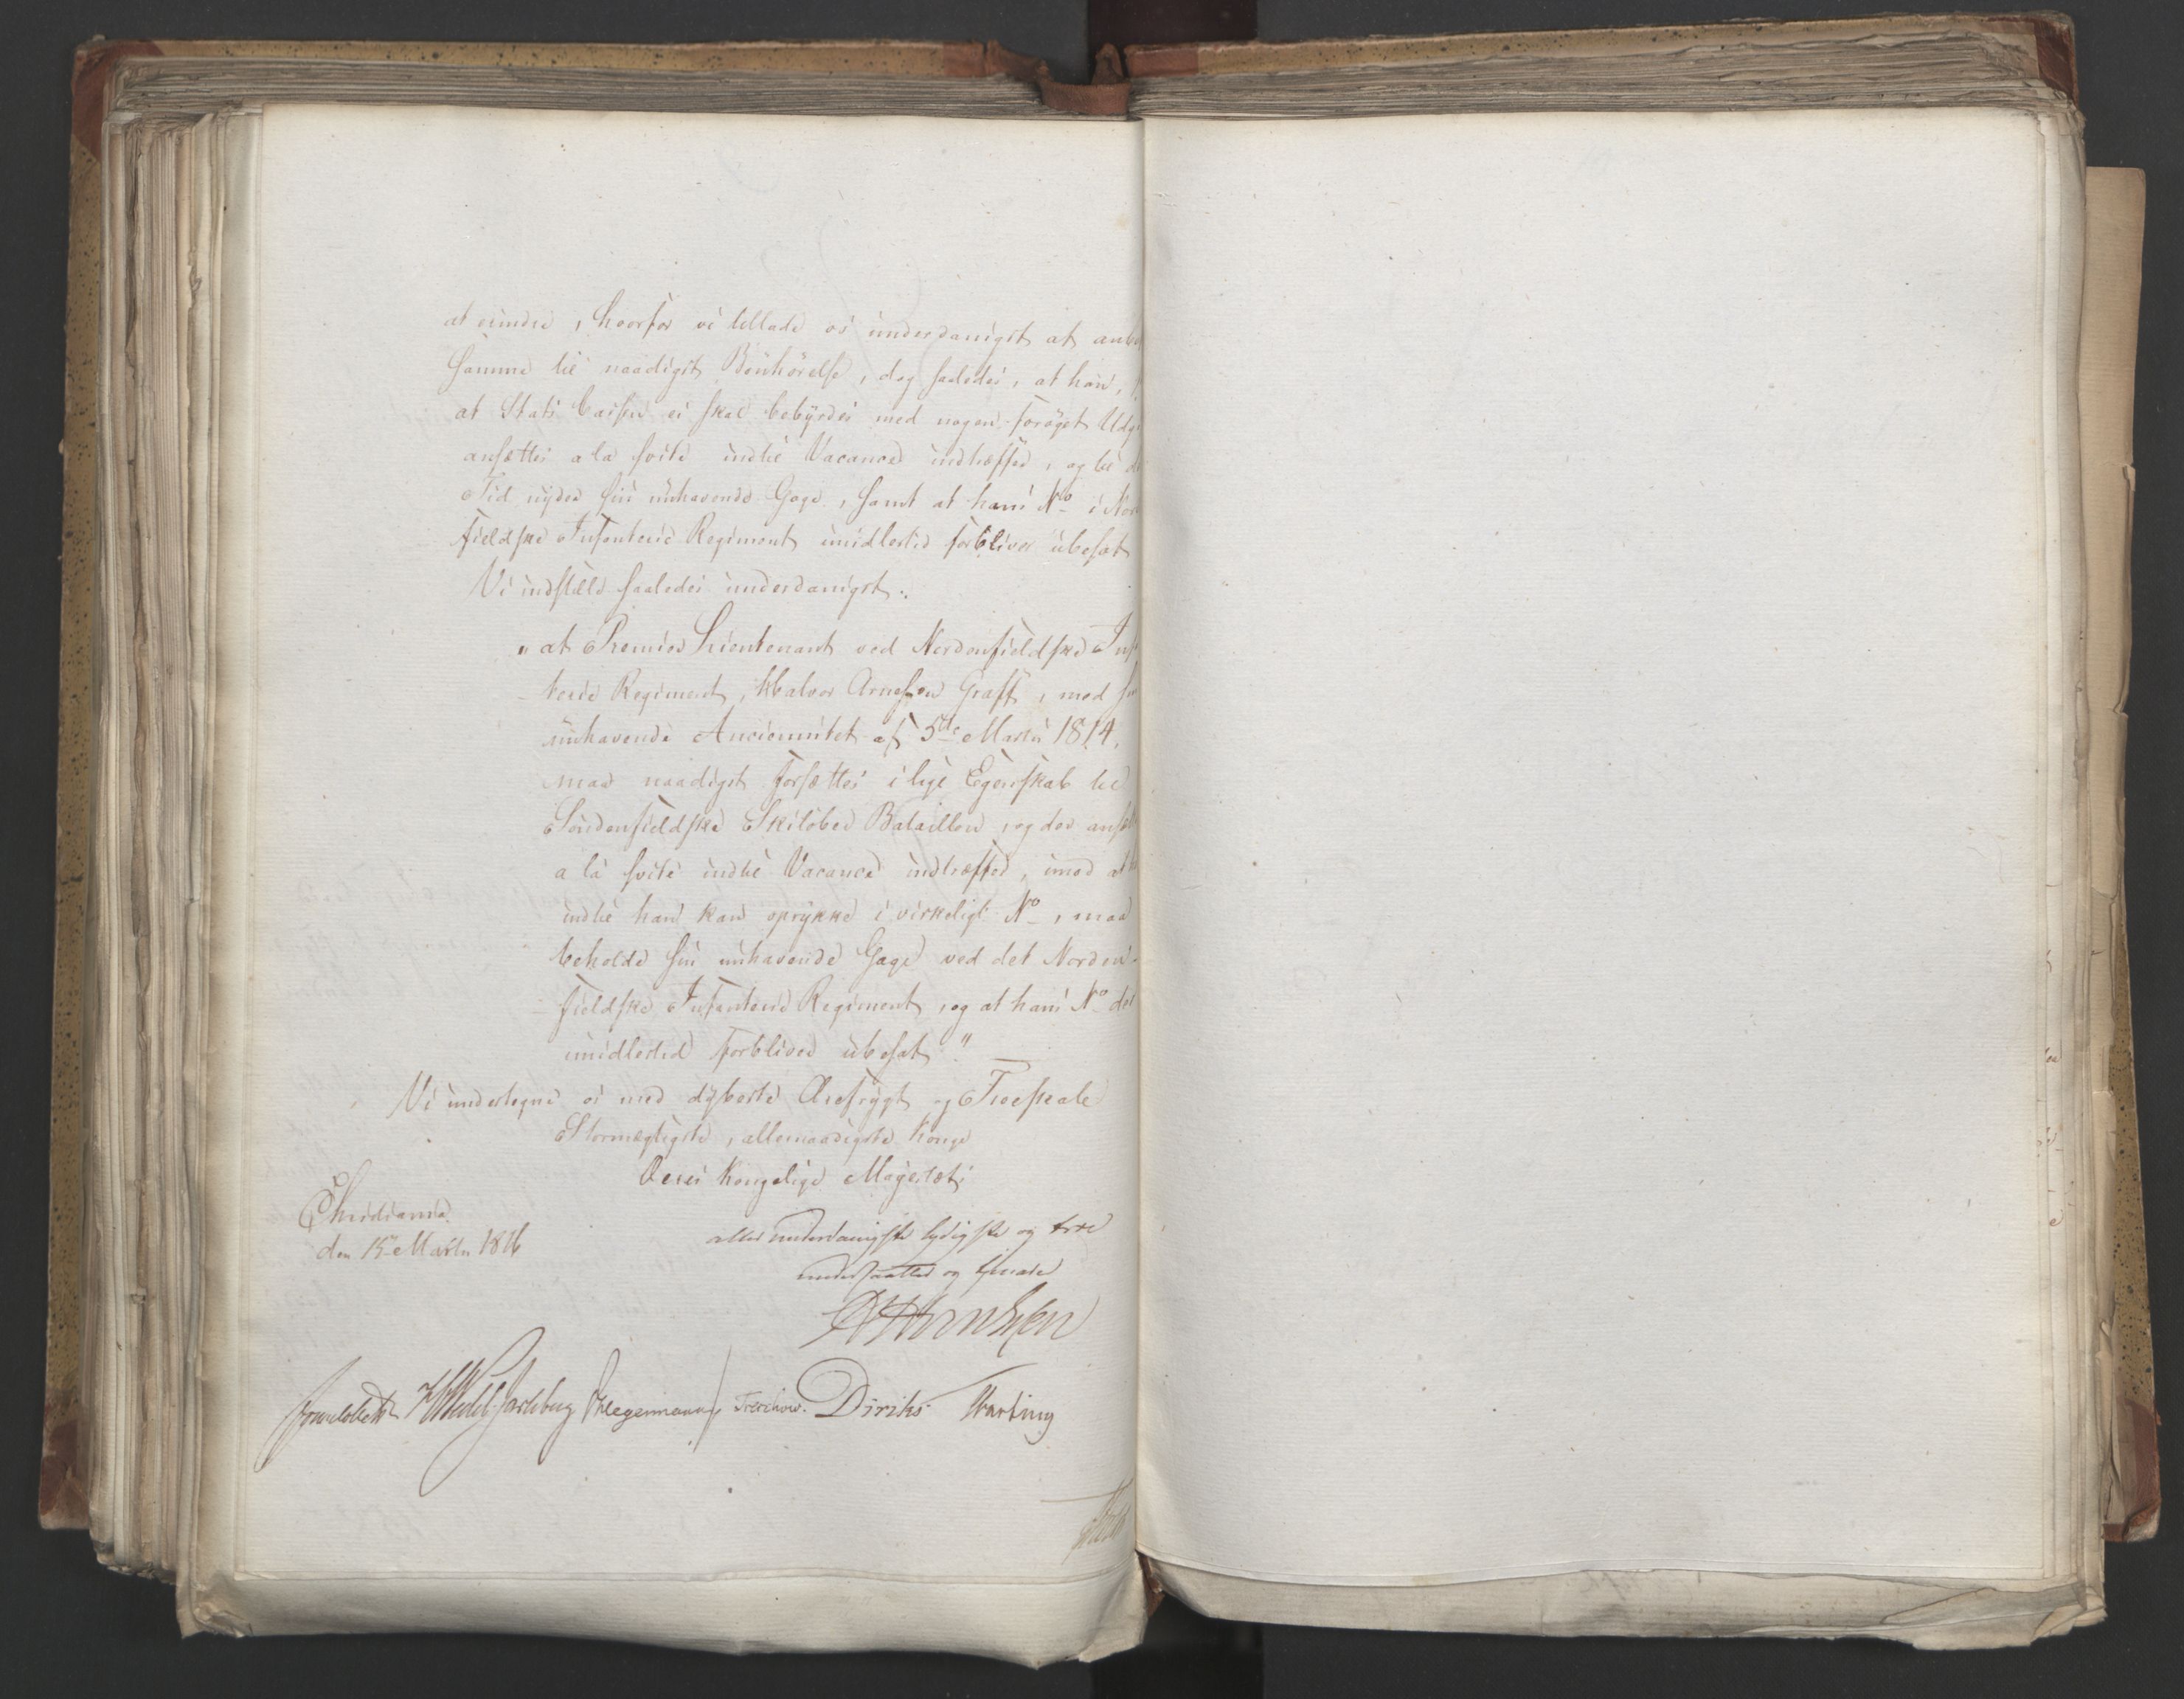 at erindre, hvorfor vi tillade os underdanigst at anbe
samme til naadigst Bönhörelse, dog saaledes, at han,
at Stats Cassen ei skal bebyrdes med nogen forøget Udg
ansættes a la svite indtil Vacance indtræffer, og til d
Tid nyder sin innhavende Gage, samt at hans No i Nor
fieldske Infanterie Regiment imidlertid forbliver ubesat
Vi indstille saaledes underdanigst:
"at Premier Lieutenant ved Nordenfieldske Inf
terie Regiment, Halvor Arnesen Graff, med s
innhavende Anciennitet af 5te Martii 1814,
maa naadigst forsættes i lige Egenskab til
Söndenfieldske Skilöber Bataillon, og der ansætt
a la svite indtil Vacance indtræffer, imod at
indtil han kan oprykke i virkeligt No, maa
beholde sin innhavende Gage ved det Norden-
fieldske Infanterie Regiment, og at hans No der
imidlertid forbliver ubesat"
Vi undertegne os med dybeste Ærefrygt og Troeskab
Stormægtigste, allernaadigste Konge
Deres Kongelige Majestæts
Christiania
den 15 Martii 1816
allerunderdanigste lydigste og troe
undersaatter og tjenere
Sommerhielm HWedel Jarlsberg Hegermann Treschow. Diriks